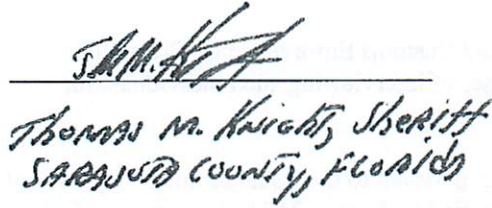 Thomas M. Knight, Sheriff
Sarasota County, Florida